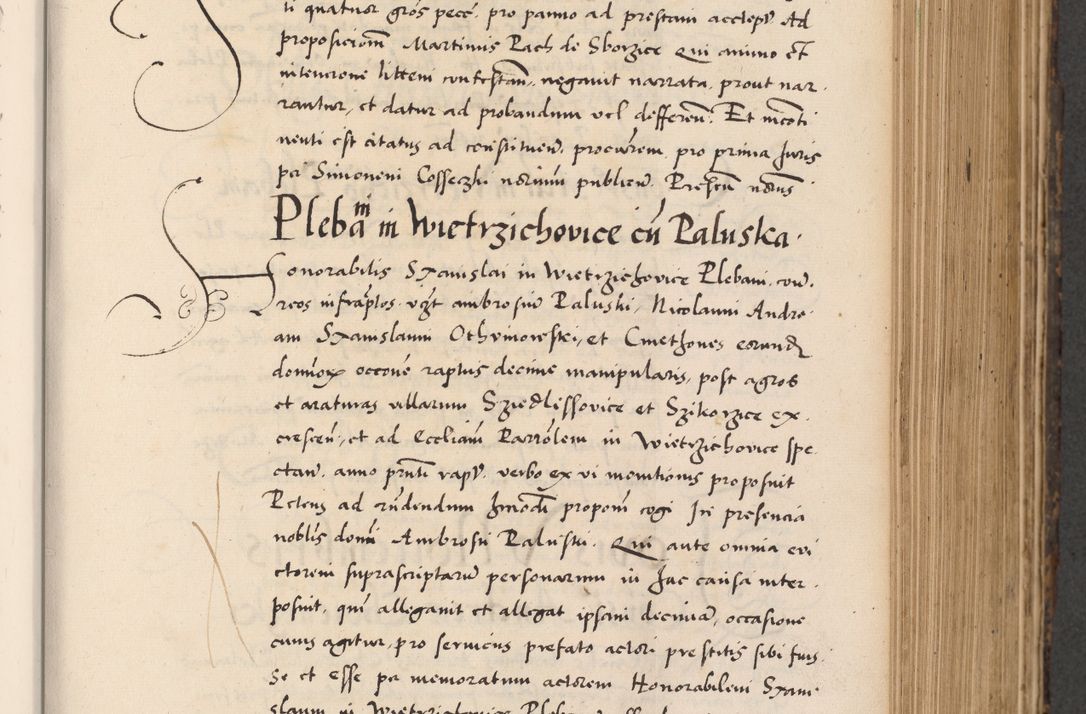 ti quatuor gros pece. pro panno ad prestani accept Ad
proposicionē Martinus Pach de Sborzice Qui animo et
intencione litteni contestan. negavit narrata, prout nar
rantur, et datur ad probandum vel defferen. Et inconti
nenti est citatus ad constituen. procurem pro prima Juris
per Simonem Cosseczki nrinm publicu. Presen nrns
Plebani in Wietrzichovice cū Paluska.
Honorabilis Stanislai in Wietrzichovice Plebani. con.
reos infraptos. vzt ambrosiu Paluski, Nicolaum Andre
am Stanislaum Othvinowski, et Cmethones eorund
domorx occone raptus decime manipularis, post agros
et araturas villarum Sziedlissovice et Szikorzice ex
crescen, et ad Eccliam Parrolem in Wietrzichovice spe
ctan. anno prnti rapt. verbo ex vi monitionis proposuit
Petens ad rndendum Imodi proponi cogi In presencia
noblis domi Ambrosii Paluski. Qui ante omnia evi
ctorem suprascriptaru personarum in hac causa inter
posuit, qui allegavit et allegat ipsam decimā, occasione
cuius agitur, pro serviciis prefato actori prestitis sibi fuis
se et esse per memoratum actorem Honorabilem Stani
slaum in Wietrzichovice